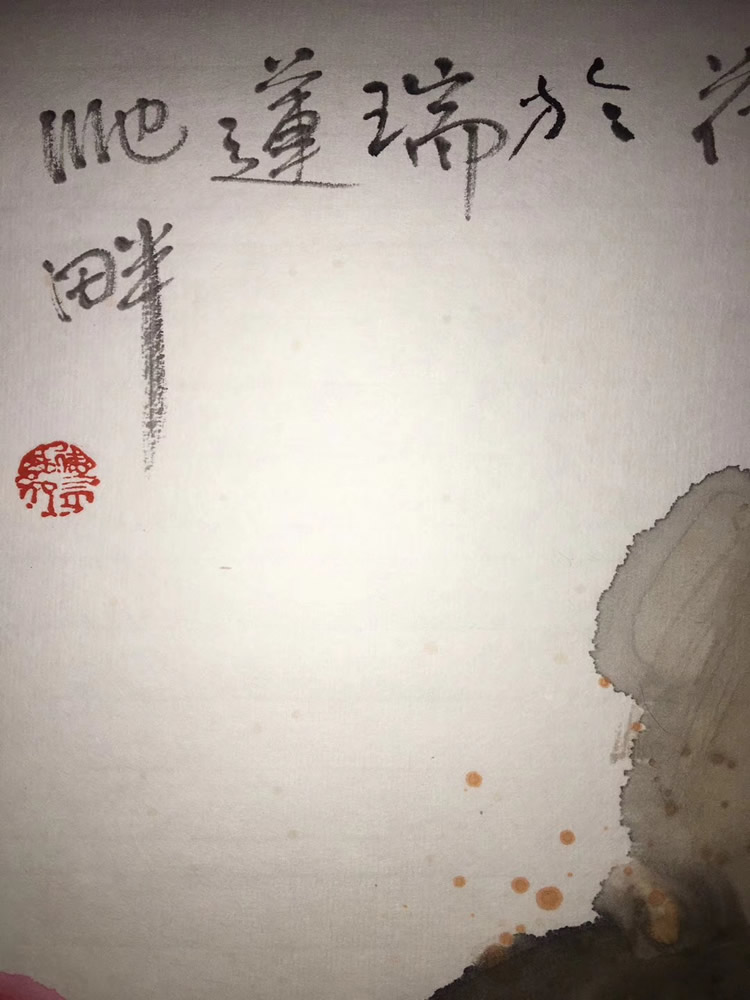 於瑞蓮池
畔